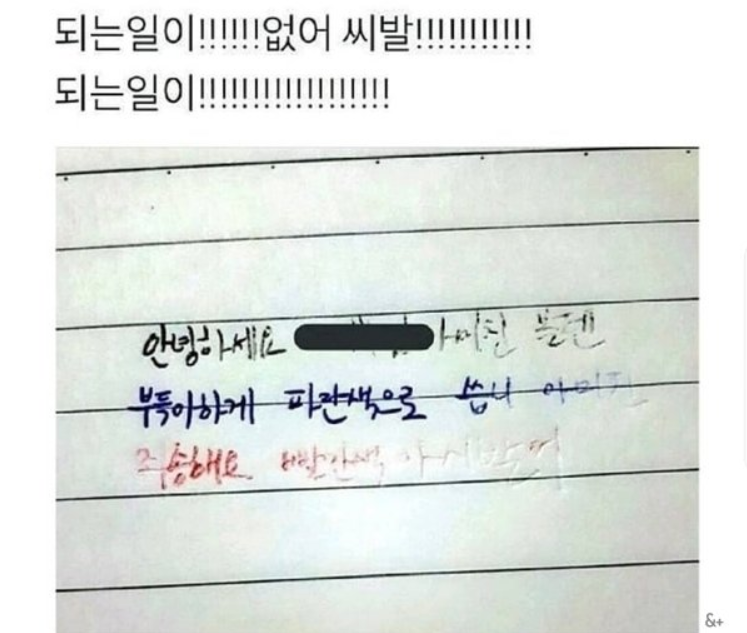 되는일이!!!!!!없어 씨발!!!!!!!!!!!
되는일이!!!!!!!!!!!!!!!!!!
안녕하세요 아미친 볼펜
부득이하게 파란색으로 씁니 아미친
죄송해요 빨간색 아시발
&+